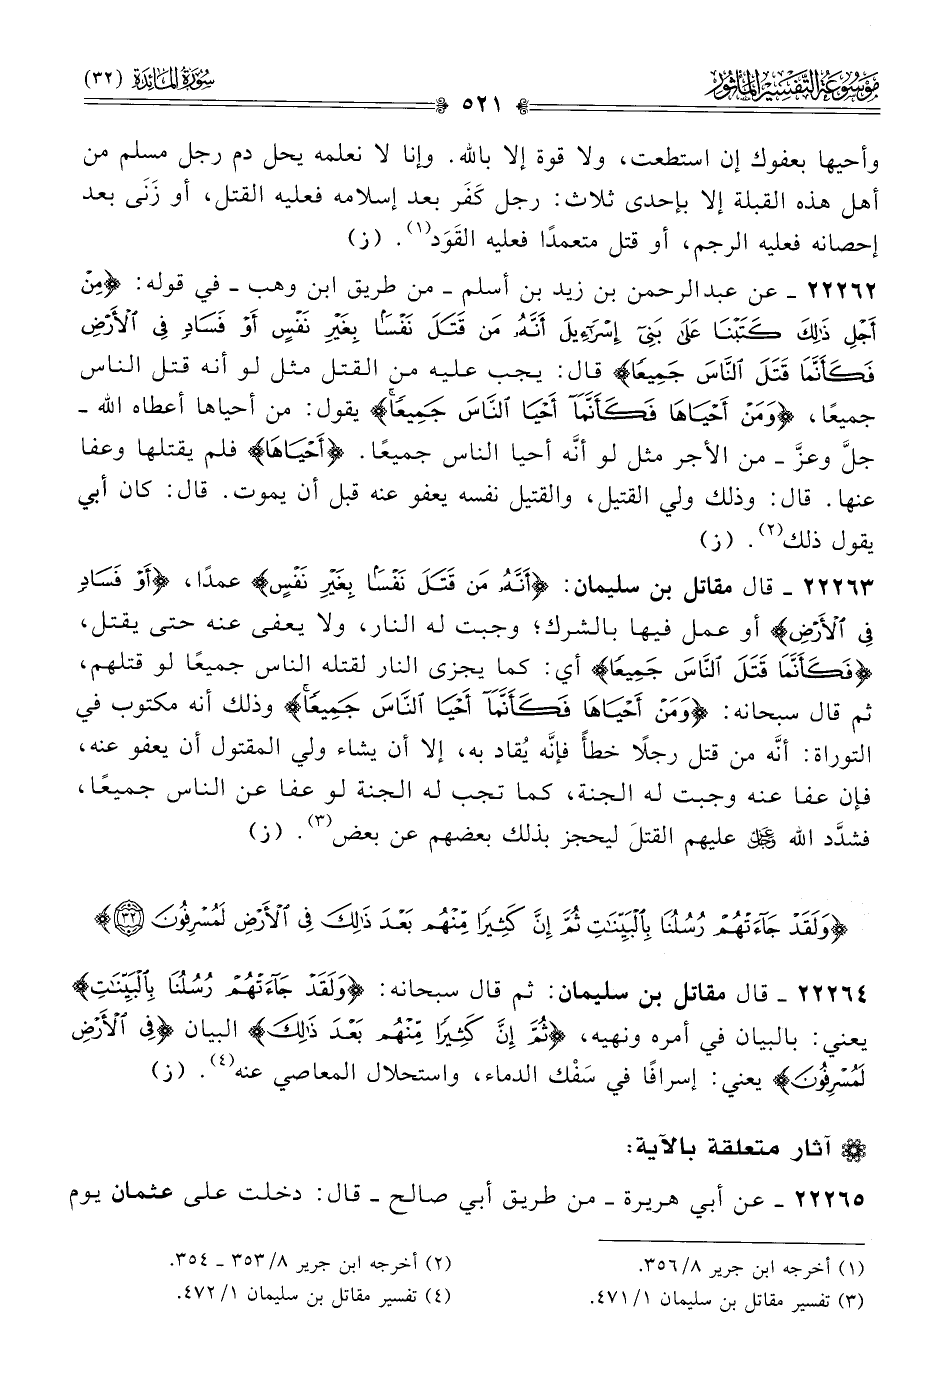 مَوْسُوعَة التَّفْسِير المَأْثُور
سُورَةُ المَائِدَة (٣٢)
٥٢١
وأحيها بعفوك إن استطعت، ولا قوة إلا بالله. وإنا لا نعلمه يحل دم رجل مسلم من
أهل هذه القبلة إلا بإحدى ثلاث: رجل كَفَر بعد إسلامه فعليه القتل، أو زَنَى بعد
إحصانه فعليه الرجم، أو قتل متعمدًا فعليه القَوَد(١). (ز)
٢٢٢٦٢ ـ عن عبدالرحمن بن زيد بن أسلم ـ من طريق ابن وهب ـ في قوله: ﴿مِنْ
أَجْلِ ذَٰلِكَ كَتَبْنَا عَلَىٰ بَنِىٓ إِسْرَٰٓءِيلَ أَنَّهُۥ مَن قَتَلَ نَفْسًۢا بِغَيْرِ نَفْسٍ أَوْ فَسَادٍ فِى ٱلْأَرْضِ
فَكَأَنَّمَا قَتَلَ ٱلنَّاسَ جَمِيعًا﴾ قال: يجب عليه من القتل مثل لو أنه قتل الناس
جميعًا، ﴿وَمَنْ أَحْيَاهَا فَكَأَنَّمَآ أَحْيَا ٱلنَّاسَ جَمِيعًا﴾ يقول: من أحياها أعطاه الله ـ
جلَّ وعزَّ ـ من الأجر مثل لو أنَّه أحيا الناس جميعًا. ﴿أَحْيَاهَا﴾ فلم يقتلها وعفا
عنها. قال: وذلك ولي القتيل، والقتيل نفسه يعفو عنه قبل أن يموت. قال: كان أبي
يقول ذلك(٢). (ز)
٢٢٢٦٣ ـ قال مقاتل بن سليمان: ﴿أَنَّهُۥ مَن قَتَلَ نَفْسًۢا بِغَيْرِ نَفْسٍ﴾ عمدًا، ﴿أَوْ فَسَادٍ
فِى ٱلْأَرْضِ﴾ أو عمل فيها بالشرك؛ وجبت له النار، ولا يعفى عنه حتى يقتل،
﴿فَكَأَنَّمَا قَتَلَ ٱلنَّاسَ جَمِيعًا﴾ أي: كما يجزى النار لقتله الناس جميعًا لو قتلهم،
ثم قال سبحانه: ﴿وَمَنْ أَحْيَاهَا فَكَأَنَّمَآ أَحْيَا ٱلنَّاسَ جَمِيعًا﴾ وذلك أنه مكتوب في
التوراة: أنَّه من قتل رجلًا خطأً فإنَّه يُقاد به، إلا أن يشاء ولي المقتول أن يعفو عنه،
فإن عفا عنه وجبت له الجنة، كما تجب له الجنة لو عفا عن الناس جميعًا،
فشدَّد الله ﷿ عليهم القتلَ ليحجز بذلك بعضهم عن بعض(٣). (ز)
﴿وَلَقَدْ جَآءَتْهُمْ رُسُلُنَا بِٱلْبَيِّنَٰتِ ثُمَّ إِنَّ كَثِيرًا مِّنْهُم بَعْدَ ذَٰلِكَ فِى ٱلْأَرْضِ لَمُسْرِفُونَ ٣٢﴾
٢٢٢٦٤ ـ قال مقاتل بن سليمان: ثم قال سبحانه: ﴿وَلَقَدْ جَآءَتْهُمْ رُسُلُنَا بِٱلْبَيِّنَٰتِ﴾
يعني: بالبيان في أمره ونهيه، ﴿ثُمَّ إِنَّ كَثِيرًا مِّنْهُم بَعْدَ ذَٰلِكَ﴾ البيان ﴿فِى ٱلْأَرْضِ
لَمُسْرِفُونَ﴾ يعني: إسرافًا في سَفْك الدماء، واستحلال المعاصي عنه(٤). (ز)
آثار متعلقة بالآية:
٢٢٢٦٥ ـ عن أبي هريرة ـ من طريق أبي صالح ـ قال: دخلت على عثمان يوم
(١) أخرجه ابن جرير ٨/ ٣٥٦.
(٢) أخرجه ابن جرير ٨/ ٣٥٣ ـ ٣٥٤.
(٣) تفسير مقاتل بن سليمان ١/ ٤٧١.
(٤) تفسير مقاتل بن سليمان ١/ ٤٧٢.